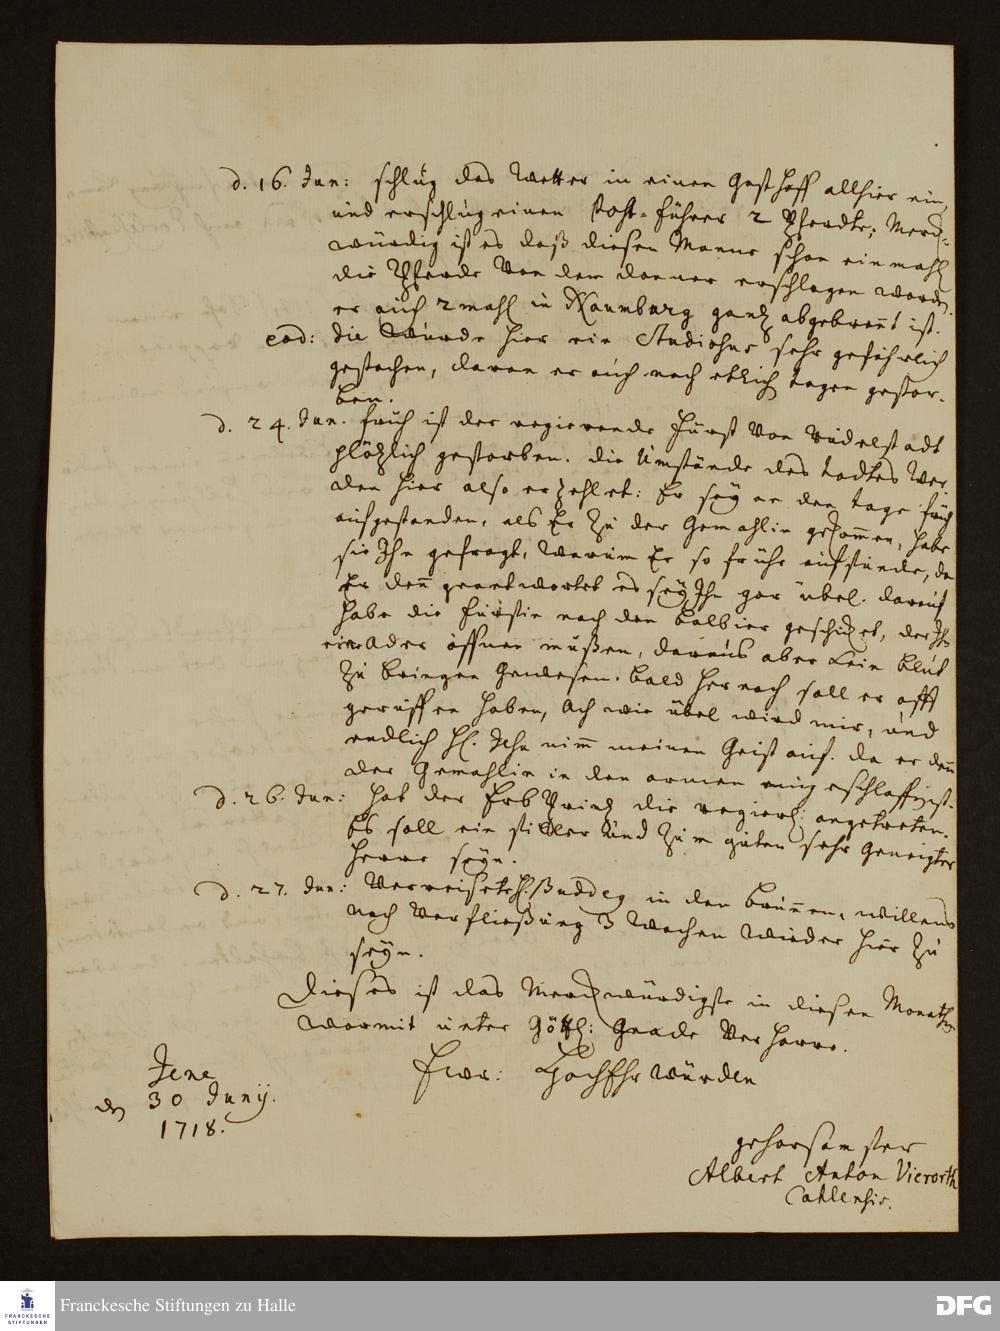 d. 16. Jun: schlug das Wetter in einen Gasthoff allhier ein,
und erschlug einen Post-führer 2 Pferdte; Merck-
würdig ist es daß diesen Manne schon einmahl
die Pferde von dem donner erschlagen worden
er auch 2 mahl in Naumburg gantz abgebrant ist.
eod: die wurde hier ein Studiosus sehr gefährlich
gestochen, davon er auch nach etlich tagen gestor-
ben.
d. 24. Jun. früh ist der regierende Fürst von Rudelstadt
plötzlich gestorben. die Umstände des todtes wer-
den hier also erzehlet: Er sey an den tage früh
aufgestanden, als Er zu der Gemahlin gekommen, habe
sie Ihn gefragt, warum Er so frühe aufstünde, da
Er denn geantwortet es sey Ihn gar übel. darauf
habe die Fürstin nach den balbier geschickt, der Ihn
eine Ader öffnen müßen, daraus aber kein blut
zu bringen gewesen. bald hernach soll er offt
geruffen haben, Ach wie übel wird mir, und
endlich H. Jesu nimm meinen Geist auf. da er denn
der Gemahlin in den armen eingeschlaffen ist.
d. 26. Jun: hat der Erb Printz die regier: angetreten.
Es soll ein stiller und zum guten sehr geneigter
Herre seyn.
d. 27. Jun: Verreisete H. Buddeg in den brunnen, willens
nach verfließung 3 Wochen wieder hier zu
seyn.
Dieses ist das Merckwürdigste in diesen Monath
wormit unter Göttl: Gnade verharre.
Ewr: HochEhrwürden
Jena
den 30 Junij.
1718.
gehorsamster
Albert Anton Vierorth
Cahlensis.
Franckesche Stiftungen zu Halle
FRANCKESCHE
STIFTUNGEN
DFG